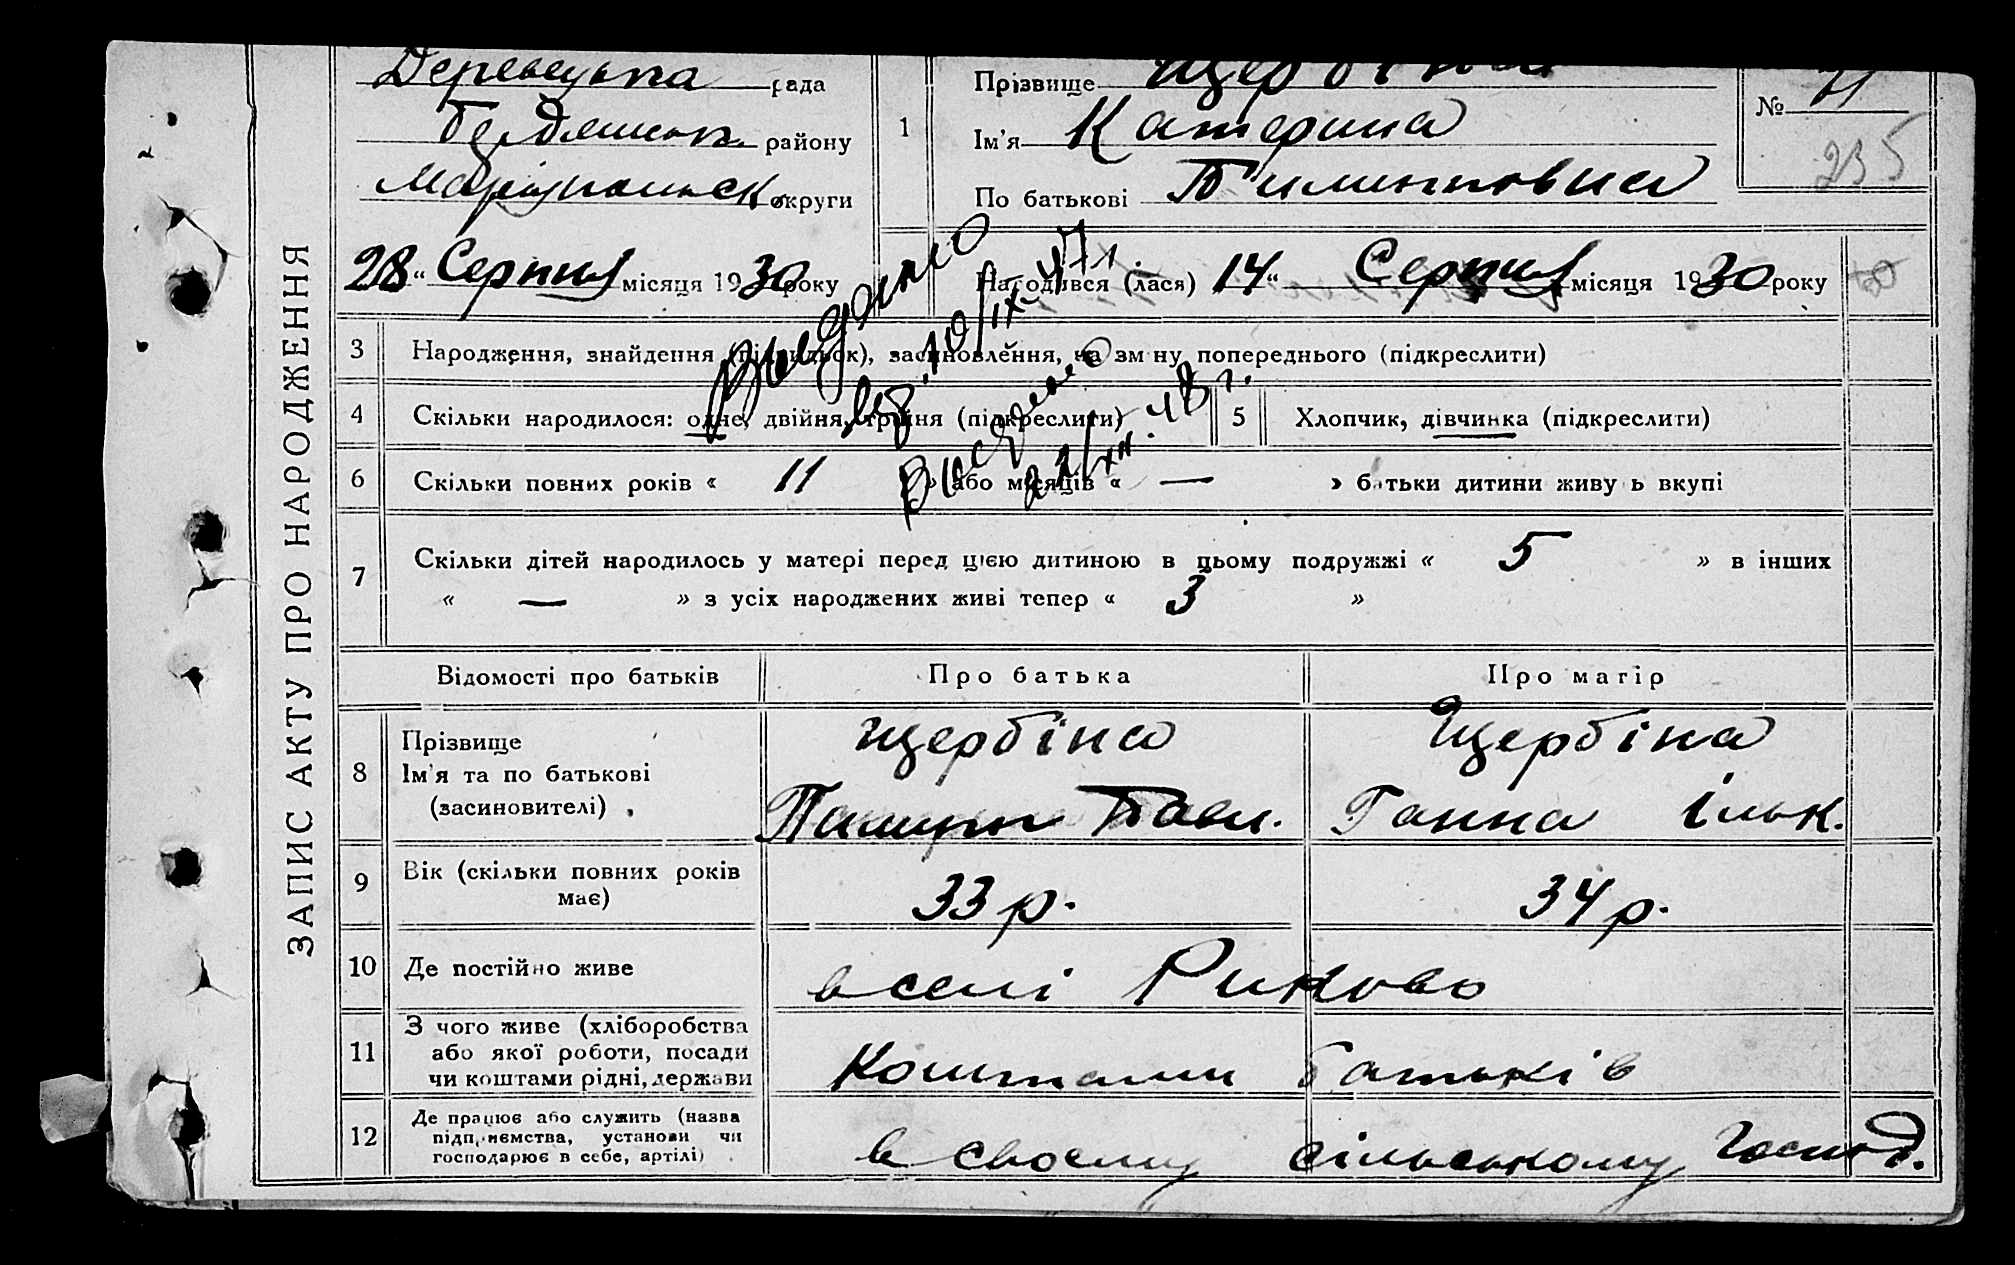 рада
Прізвище Щербіна
№ 71
району
1
Ім'я Катерина
235
Маріупольськ округи
По батькові Тимохтовна
28 “ Серпня місяця 1930 року
Народився (лася) 14 “ Серпня місяця 1930 року
Выдано
3 Народження, знайдення (підкидьок), засиновлення, на зміну попереднього (підкреслити)
4 Скільки народилося: одне, двійня, трійня (підкреслити)
5 Хлопчик, дівчинка (підкреслити)
6 Скільки повних років « 11 » або місяців « — » батьки дитини живуть вкупі
7 Скільки дітей народилось у матері перед цією дитиною в цьому подружжі « 5 » в інших
« — » з усіх народжених живі тепер « 3 »
ЗАПИС АКТУ ПРО НАРОДЖЕННЯ
Відомості про батьків
Про батька
Про матір
8 Прізвище
Ім'я та по батькові
(засиновителі)
Щербіна
Павл.
Щербіна
Ганна Ільк.
9 Вік (скільки повних років
має)
33 р.
34 р.
10 Де постійно живе
в селі Риково
11 З чого живе (хліборобства
або якої роботи, посади
чи коштами рідні, держави
Коштами батьків
12 Де працює або служить (назва
підприємства, установи чи
господарює в себе, артілі)
в своєму сільському господ.